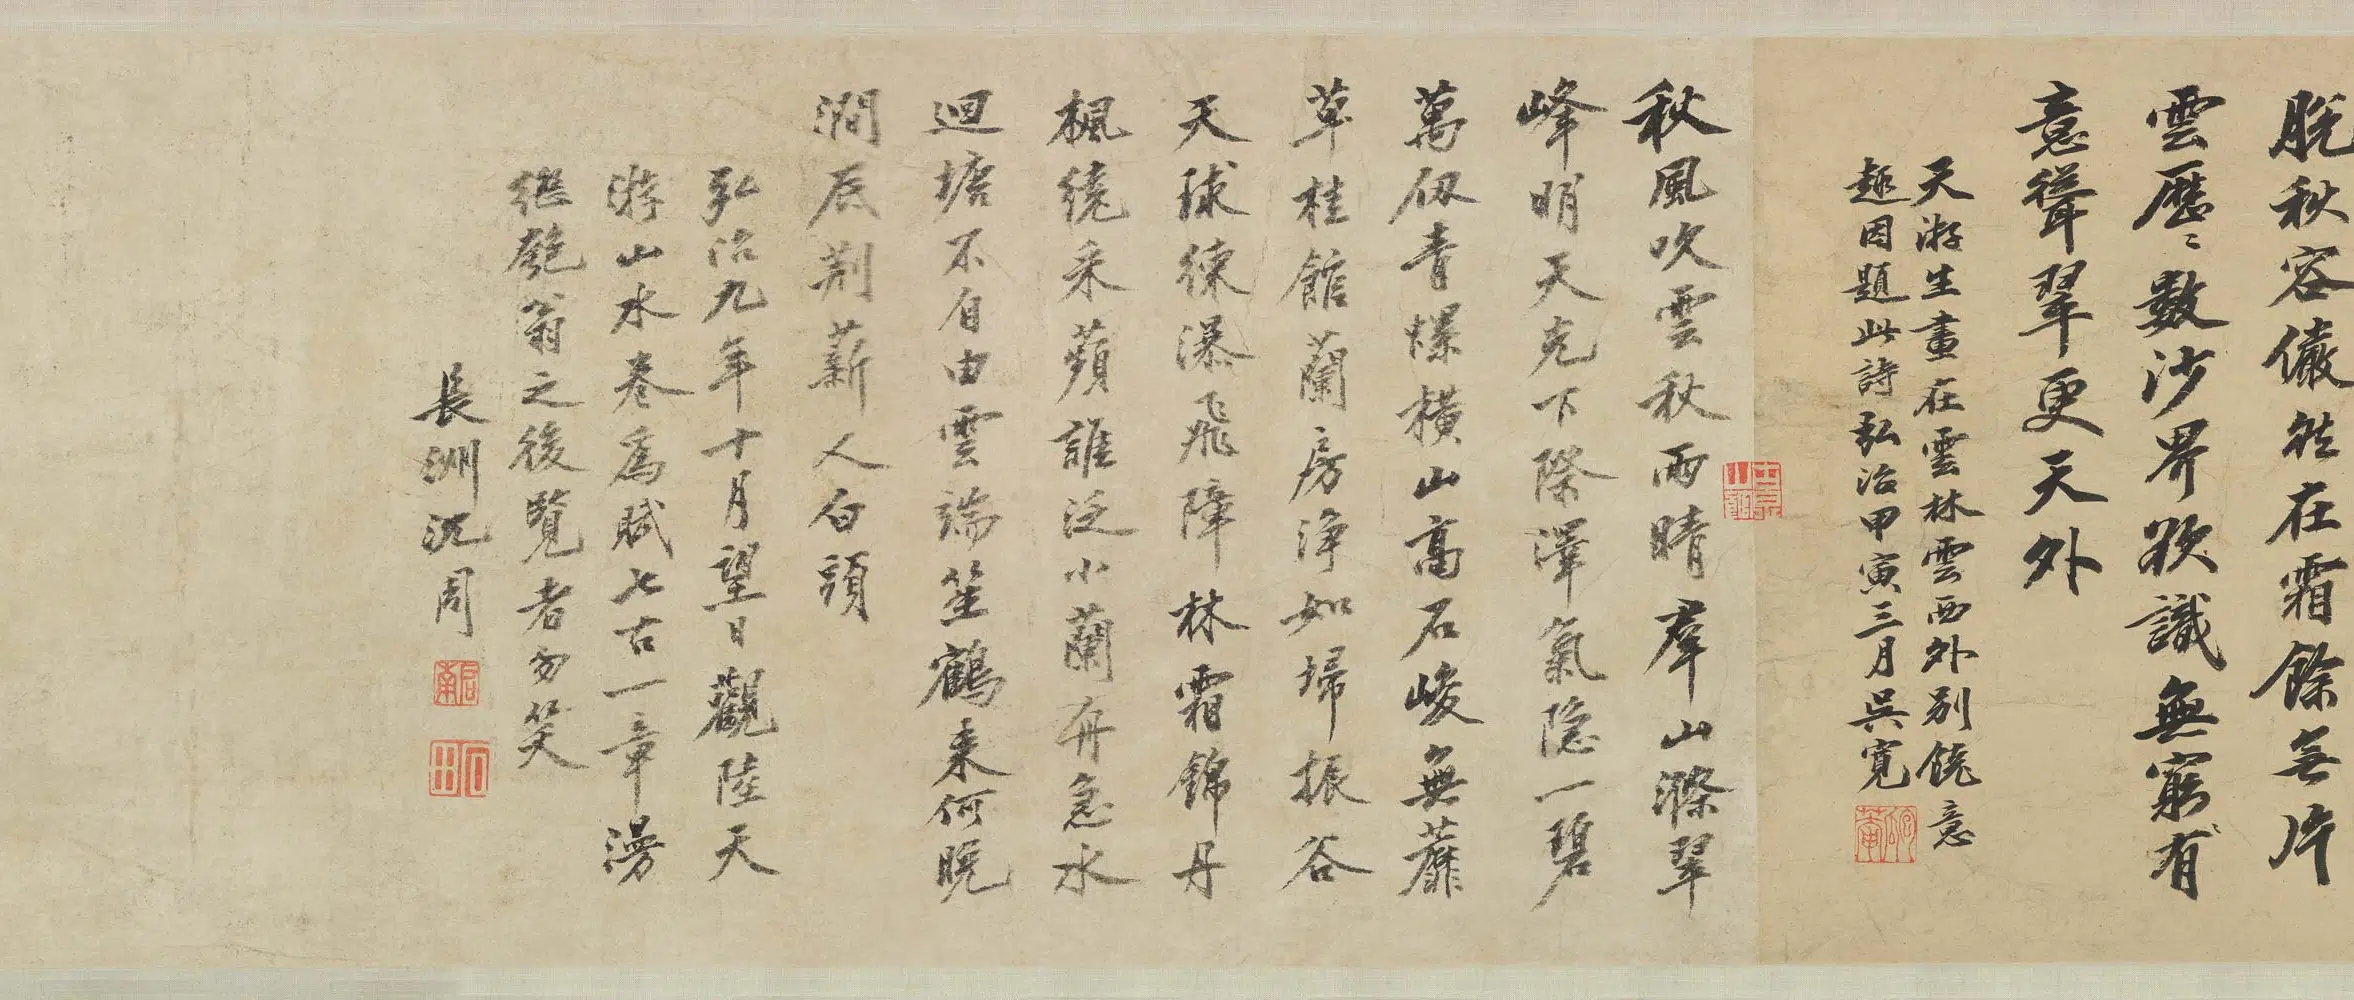 脫秋容儼然在霜餘無片
雲歷歷數沙界欲識無窮有
意聳翠更天外
天游生畫在雲林雲西外別饒意
趣因題此詩弘治甲寅三月吳寬
秋風吹雲秋雨晴羣山滌翠
峰明天光下際澤氣隐一碧
萬仭青螺橫山高石峻無蘼
草桂館蘭房浄如埽振谷
天球練瀑飛障林霜錦丹
楓繞采蘋誰泛小蘭舟急水
迴塘不自由雲端笙鶴来何晚
澗底荆薪人白頭
弘治九年十月望日觀陸天
游山水卷為賦七古一章漫
继匏翁之後覽者勿笑
長洲沉周